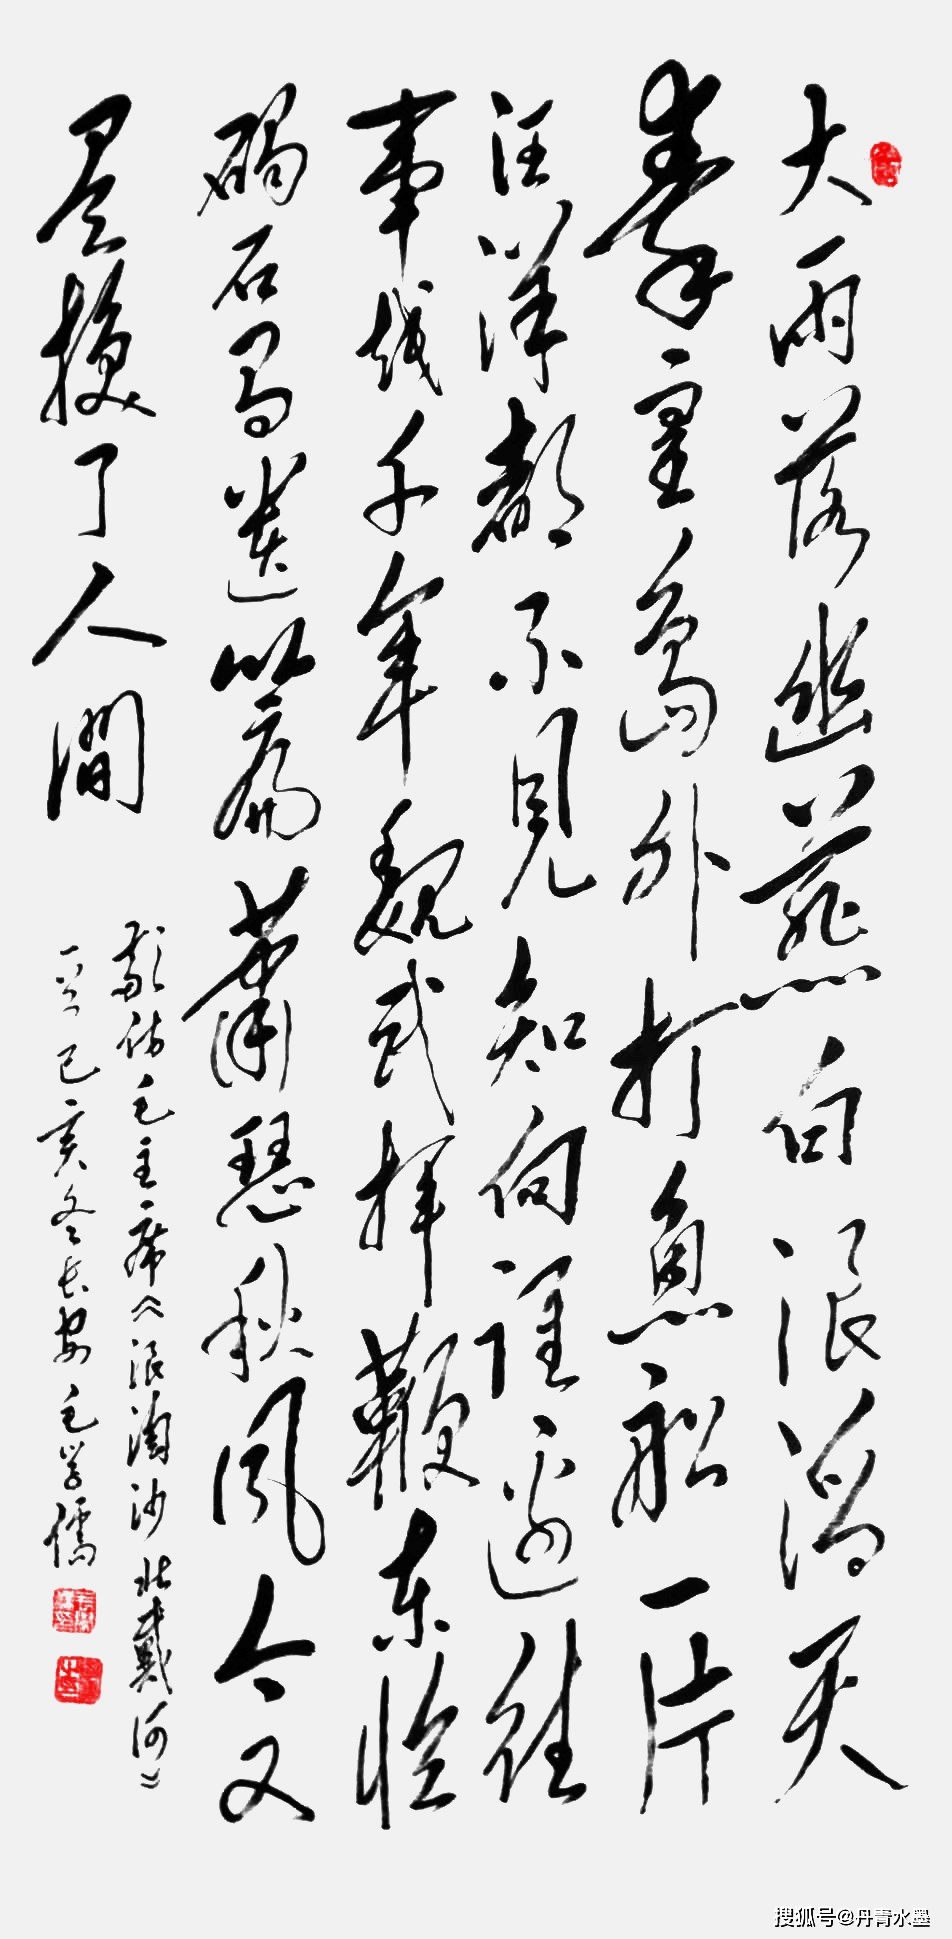 大雨落幽燕白浪滔天
秦皇島外打魚船一片
汪洋都不見知向誰邊往
事越千年魏武揮鞭东临
碣石有遺篇蕭瑟秋风今又
是換了人間
敬仿毛主席《浪淘沙北戴河》
己亥冬长安毛学儒
搜狐号@丹青水墨